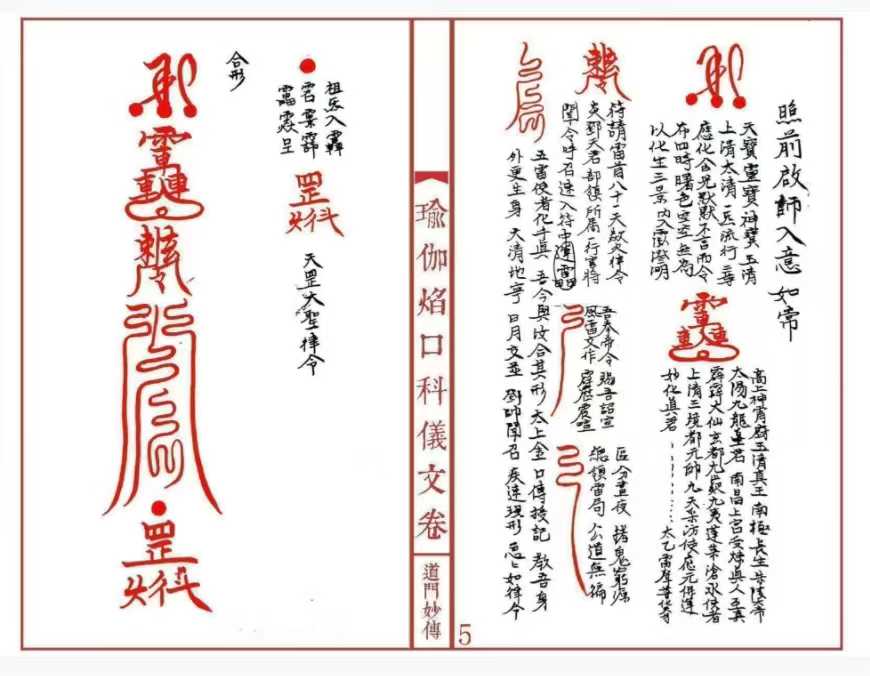 照前啟師入意如常
天寶靈寶神寶玉清
上清太清 三炁流行 三尊
應化含光默默不言而令
布四時曙色空空無為
以化生三景內入 澄明
高上神霄府玉清真王 南極長生 大帝
太陽九龍墓君 南昌上宮受煉真人 至真
霹靂大仙玄都九炁九夷蓬萊滄水使者
上清三境都元帥九天采訪使應元保運
妙化真君 ………… 太乙雷聲普化
待請雷首八十一天 律令
炎鄧天君部領所屬一行官將
聞令呼召速入符中
吾奉帝令 賜吾詔宣
風雷交作 霹靂震喧
區分晝夜 拷鬼窮源
總領雷局 公道無偏
五雷使者化千真 吾今與汝合其形 太上金口傳授記 教吾身
外更生身 天清地寧 日月交並 鄧帥聞召 疾速現形 急々如律令
瑜伽焰口科儀文卷
道門妙傳
5
祖炁入
罡
天罡大聖律令
合形
罡